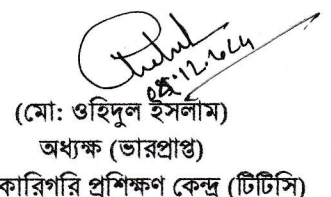 (মো: ওহিদুল ইসলাম)
অধ্যক্ষ (ভারপ্রাপ্ত)
কারিগরি প্রশিক্ষণ কেন্দ্র (টিটিসি)